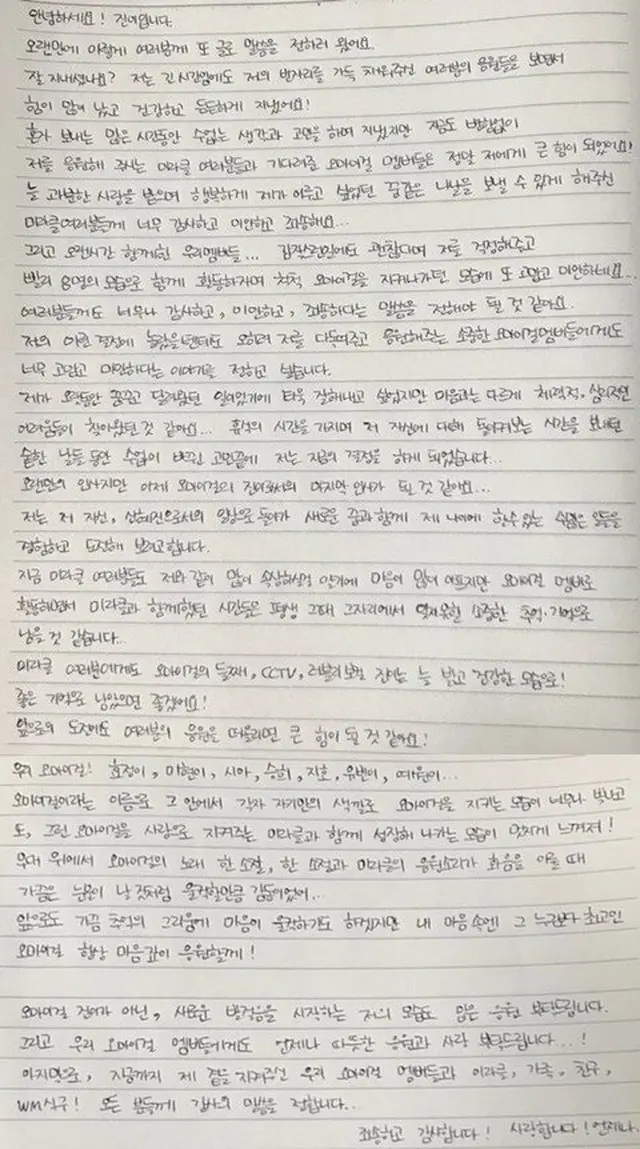 안녕하세요! 진이입니다.
오랜만에 이렇게 여러분께 또 글로 말씀을 전하러 왔어요.
잘 지내셨나요? 저는 긴 시간임에도 저의 빈자리를 가득 채워주신 여러분의 응원들을 보면서
힘이 많이 났고 건강하고 든든하게 지냈어요!
혼자 보내는 많은 시간동안 수없는 생각과 고민을 하며 지냈지만 지금도 변함없이
저를 응원해 주시는 미라클 여러분들과 기다려준 오마이걸 멤버들은 정말 저에게 큰 힘이 되었어요!
늘 과분한 사랑을 받으며 행복하게 제가 이루고 싶었던 꿈같은 나날을 보낼 수 있게 해주신
미라클여러분들께 너무 감사하고 미안하고 죄송해요...
그리고 오랜시간 함께한 우리멤버들... 갑작스런일에도 괜찮다며 저를 걱정해주고
빨리 8명의 모습으로 함께 활동하자며 씩씩 오마이걸을 지켜나가던 모습에 또 고맙고 미안하네요...
여러분들께도 너무나 감사하고, 미안하고, 죄송하다는 말씀을 전해야 될 것 같아요.
저의 이런 결정에 놀랐을텐데도 오히려 저를 다독여주고 응원해주는 소중한 오마이걸멤버들에게도
너무 고맙고 미안하다는 이야기를 전하고 싶습니다.
제가 오랫동안 꿈꾸고 달려왔던 일이었기에 더욱 잘해내고 싶었지만 마음과는 다르게 체력적, 심리적인
어려움들이 찾아왔던 것 같아요... 휴식의 시간을 가지며 저 자신에 대해 돌아켜보는 시간을 보내던
숱한 날들 동안 수없이 바뀐 고민끝에 저는 지금의 결정을 하게 되었습니다...
오랜만의 인사지만 이제 오마이걸의 진이로서의 마지막 인사가 될 것 같아요...
저는 저 자신, 신혜진으로서의 일상으로 돌아가 새로운 꿈과 함께 제 나이에 할수있는 수많은 일들을
경험하고 도전해 보려고합니다.
지금 미라클 여러분들도 저와같이 많이 속상하실걸 알기에 마음이 많이 아프지만 오마이걸 멤버로
활동하면서 미라클과 함께했던 시간들은 평생 그때 그자리에서 잊지못할 소중한 추억·기억으로
남을 것 같습니다..
미라클 여러분에게도 오마이걸의 둘째, CCTV, 러블리보컬 진이는 늘 밝고 건강한 모습으로!
좋은 기억으로 남았으면 좋겠어요!
앞으로의 도전에도 여러분의 응원을 떠올리면 큰 힘이 될 것 같아요!
우리 오마이걸! 효정이, 미현이, 시아, 승희, 지호, 유빈이, 예원이...
오마이걸이라는 이름으로 그 안에서 각자 자기만의 색깔로 오마이걸을 지키는 모습이 너무나 빛나고
또, 그런 오마이걸을 사랑으로 지켜주는 미라클과 함께 성장해 나가는 모습이 멋지게 느껴져!
무대 위에서 오마이걸의 노래 한 소절, 한 소절과 미라클의 응원소리가 화음을 이룰 때
가끔은 눈물이 날것처럼 울컥할만큼 감동이었어..
앞으로도 가끔 추억의 그리움에 마음이 울컥하기도 하겠지만 내 마음속엔 그 누구보다 최고인
오마이걸 항상 마음깊이 응원할게!
오마이걸 진이가 아닌, 새로운 발걸음을 시작하는 저의 모습도 많은 응원 부탁드립니다.
그리고 우리 오마이걸 멤버들에게도 언제나 따뜻한 응원과 사랑 부탁드립니다...!
마지막으로, 지금까지 제 곁을 지켜주신 우리 오마이걸 멤버들과 미라클, 가족, 친구,
WM식구! 모든 분들께 감사의 말씀을 전합니다...
죄송하고 감사합니다! 사랑합니다! 언제나.